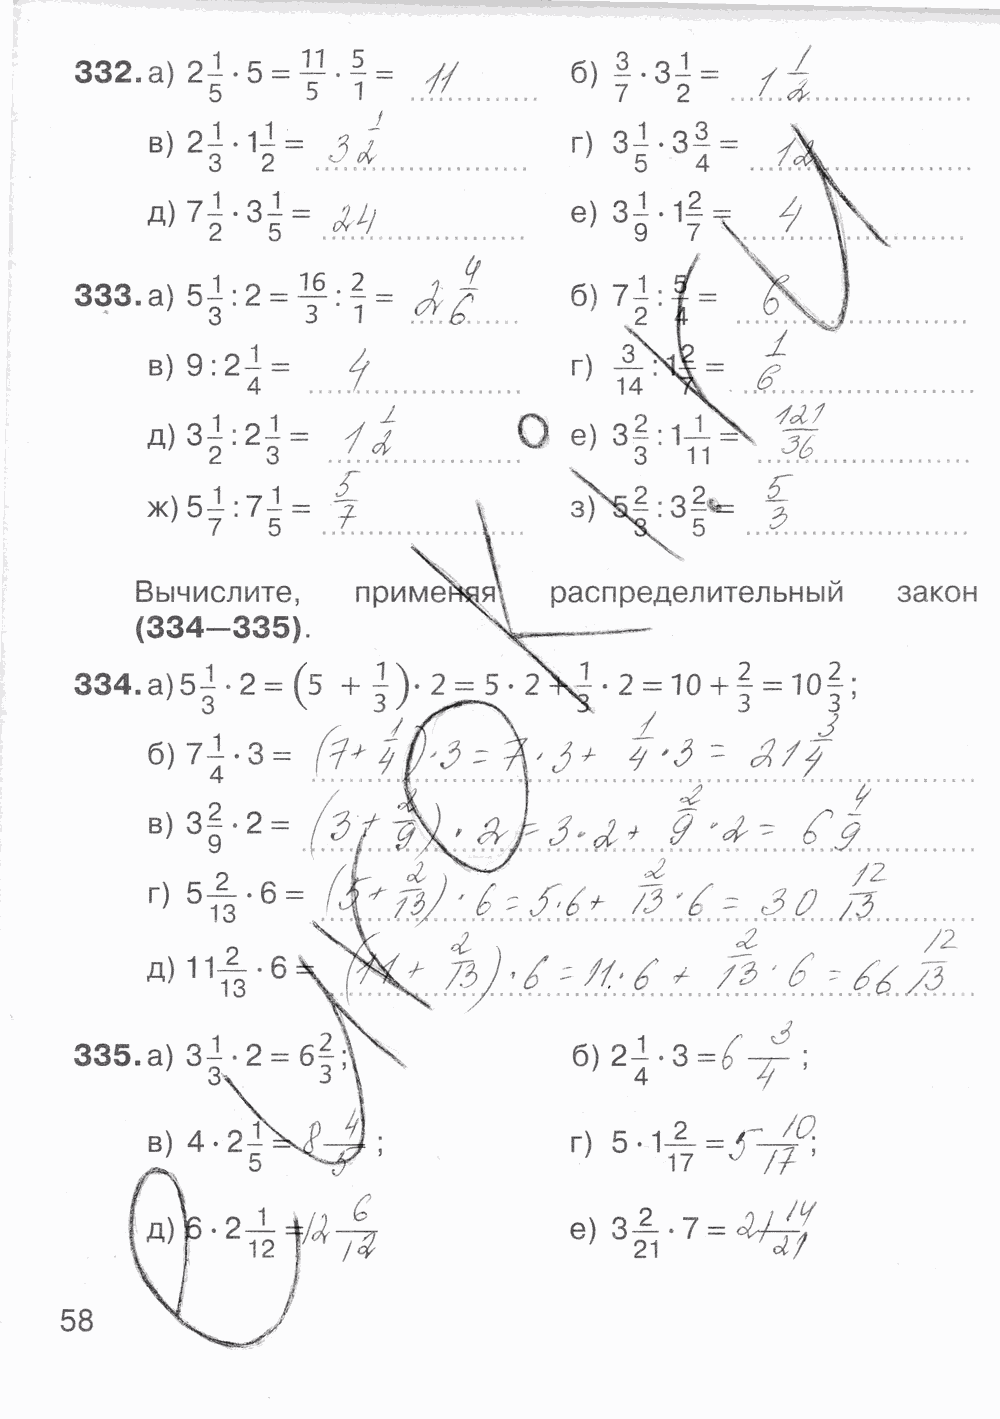 332. а) 2 1/5 · 5 = 11/5 · 5/1 = 11 б) 3/7 · 3 1/2 = 1 1/2
в) 2 1/3 · 1 1/2 = 3 1/2 г) 3 1/5 · 3 3/4 = 12
д) 7 1/2 · 3 1/5 = 24 е) 3 1/9 · 1 2/7 = 4
333. а) 5 1/3 : 2 = 16/3 : 2/1 = 2 4/6 б) 7 1/2 : 5/4 = 6
в) 9 : 2 1/4 = 4 г) 3/14 : 1 2/7 = 1/6
д) 3 1/2 : 2 1/3 = 1 1/2 е) 3 2/3 : 1 1/11 = 121/36
ж) 5 1/7 : 7 1/5 = 5/7 з) 5 2/3 : 3 2/5 = 5/3
Вычислите, применяя распределительный закон
(334—335).
334. а) 5 1/3 · 2 = (5 + 1/3) · 2 = 5 · 2 + 1/3 · 2 = 10 + 2/3 = 10 2/3;
б) 7 1/4 · 3 = (7 + 1/4) · 3 = 7 · 3 + 1/4 · 3 = 21 3/4
в) 3 2/9 · 2 = (3 + 2/9) · 2 = 3 · 2 + 2/9 · 2 = 6 4/9
г) 5 2/13 · 6 = (5 + 2/13) · 6 = 5 · 6 + 2/13 · 6 = 30 12/13
д) 11 2/13 · 6 = (11 + 2/13) · 6 = 11 · 6 + 2/13 · 6 = 66 12/13
335. а) 3 1/3 · 2 = 6 2/3; б) 2 1/4 · 3 = 6 3/4 ;
в) 4 · 2 1/5 = 8 4/5 ; г) 5 · 1 2/17 = 5 10/17;
д) 6 · 2 1/12 = 12 6/12 е) 3 2/21 · 7 = 21 14/21
58